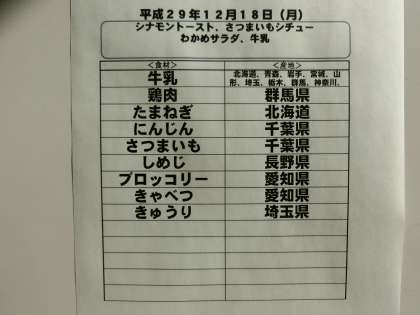 平成29年12月18日（月）
シナモントースト、さつまいもシチュー
わかめサラダ、牛乳
＜食材＞ ＜産地＞
牛乳 北海道、青森、岩手、宮城、山
形、埼玉、栃木、群馬、神奈川、
鶏肉 群馬県
たまねぎ 北海道
にんじん 千葉県
さつまいも 千葉県
しめじ 長野県
ブロッコリー 愛知県
きゃべつ 愛知県
きゅうり 埼玉県